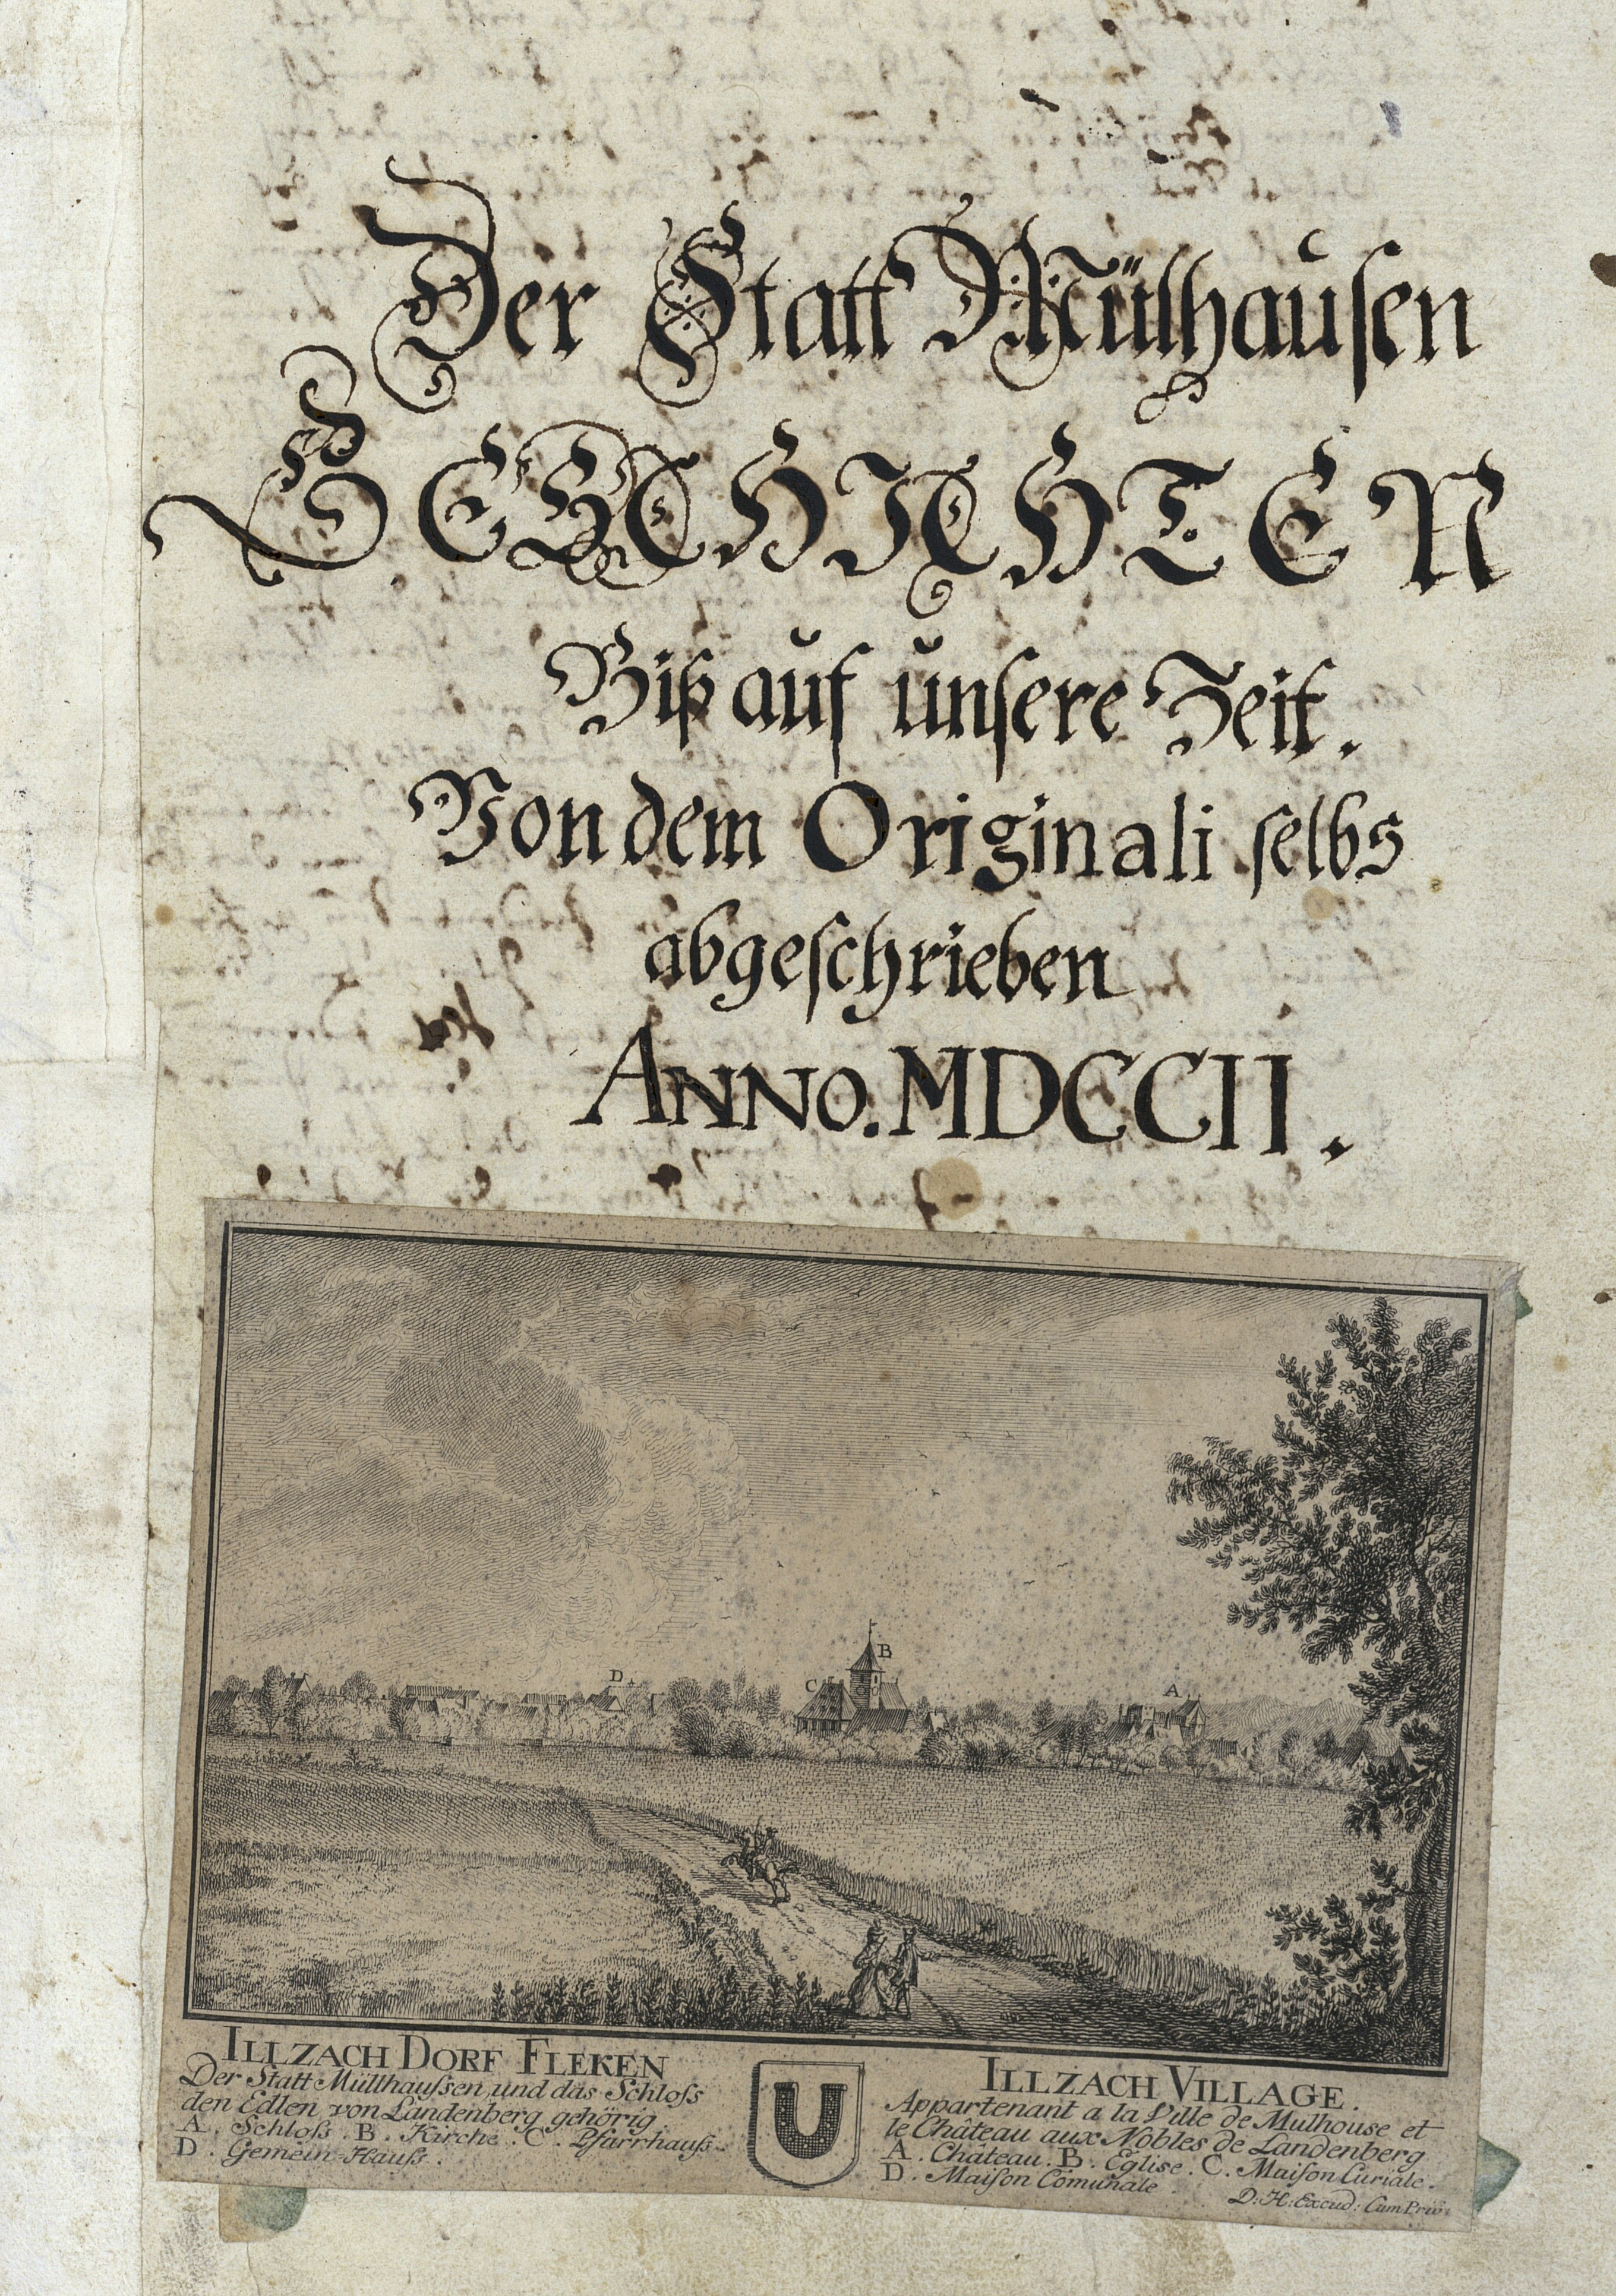 Der Statt Mülhausen
GESCHICHTEN
Biß auf unsere Zeit.
Von dem Originali selbs
abgeschrieben
ANNO. MDCCII.
D
B
C
A
ILLZACH DORF FLEKEN
Der Statt Müllhaussen und das Schloss
den Edlen von Landenberg gehörig.
A. Schloss. B. Kirche. C. Pfarrhauss.
D. Gemein-Hauss.
U
ILLZACH VILLAGE.
Appartenant a la Ville de Mulhouse et
le Château aux Nobles de Landenberg
A. Château. B. Eglise. C. Maison Curiale.
D. Maison Comunale.
D: H: Excud: Cum Priv: